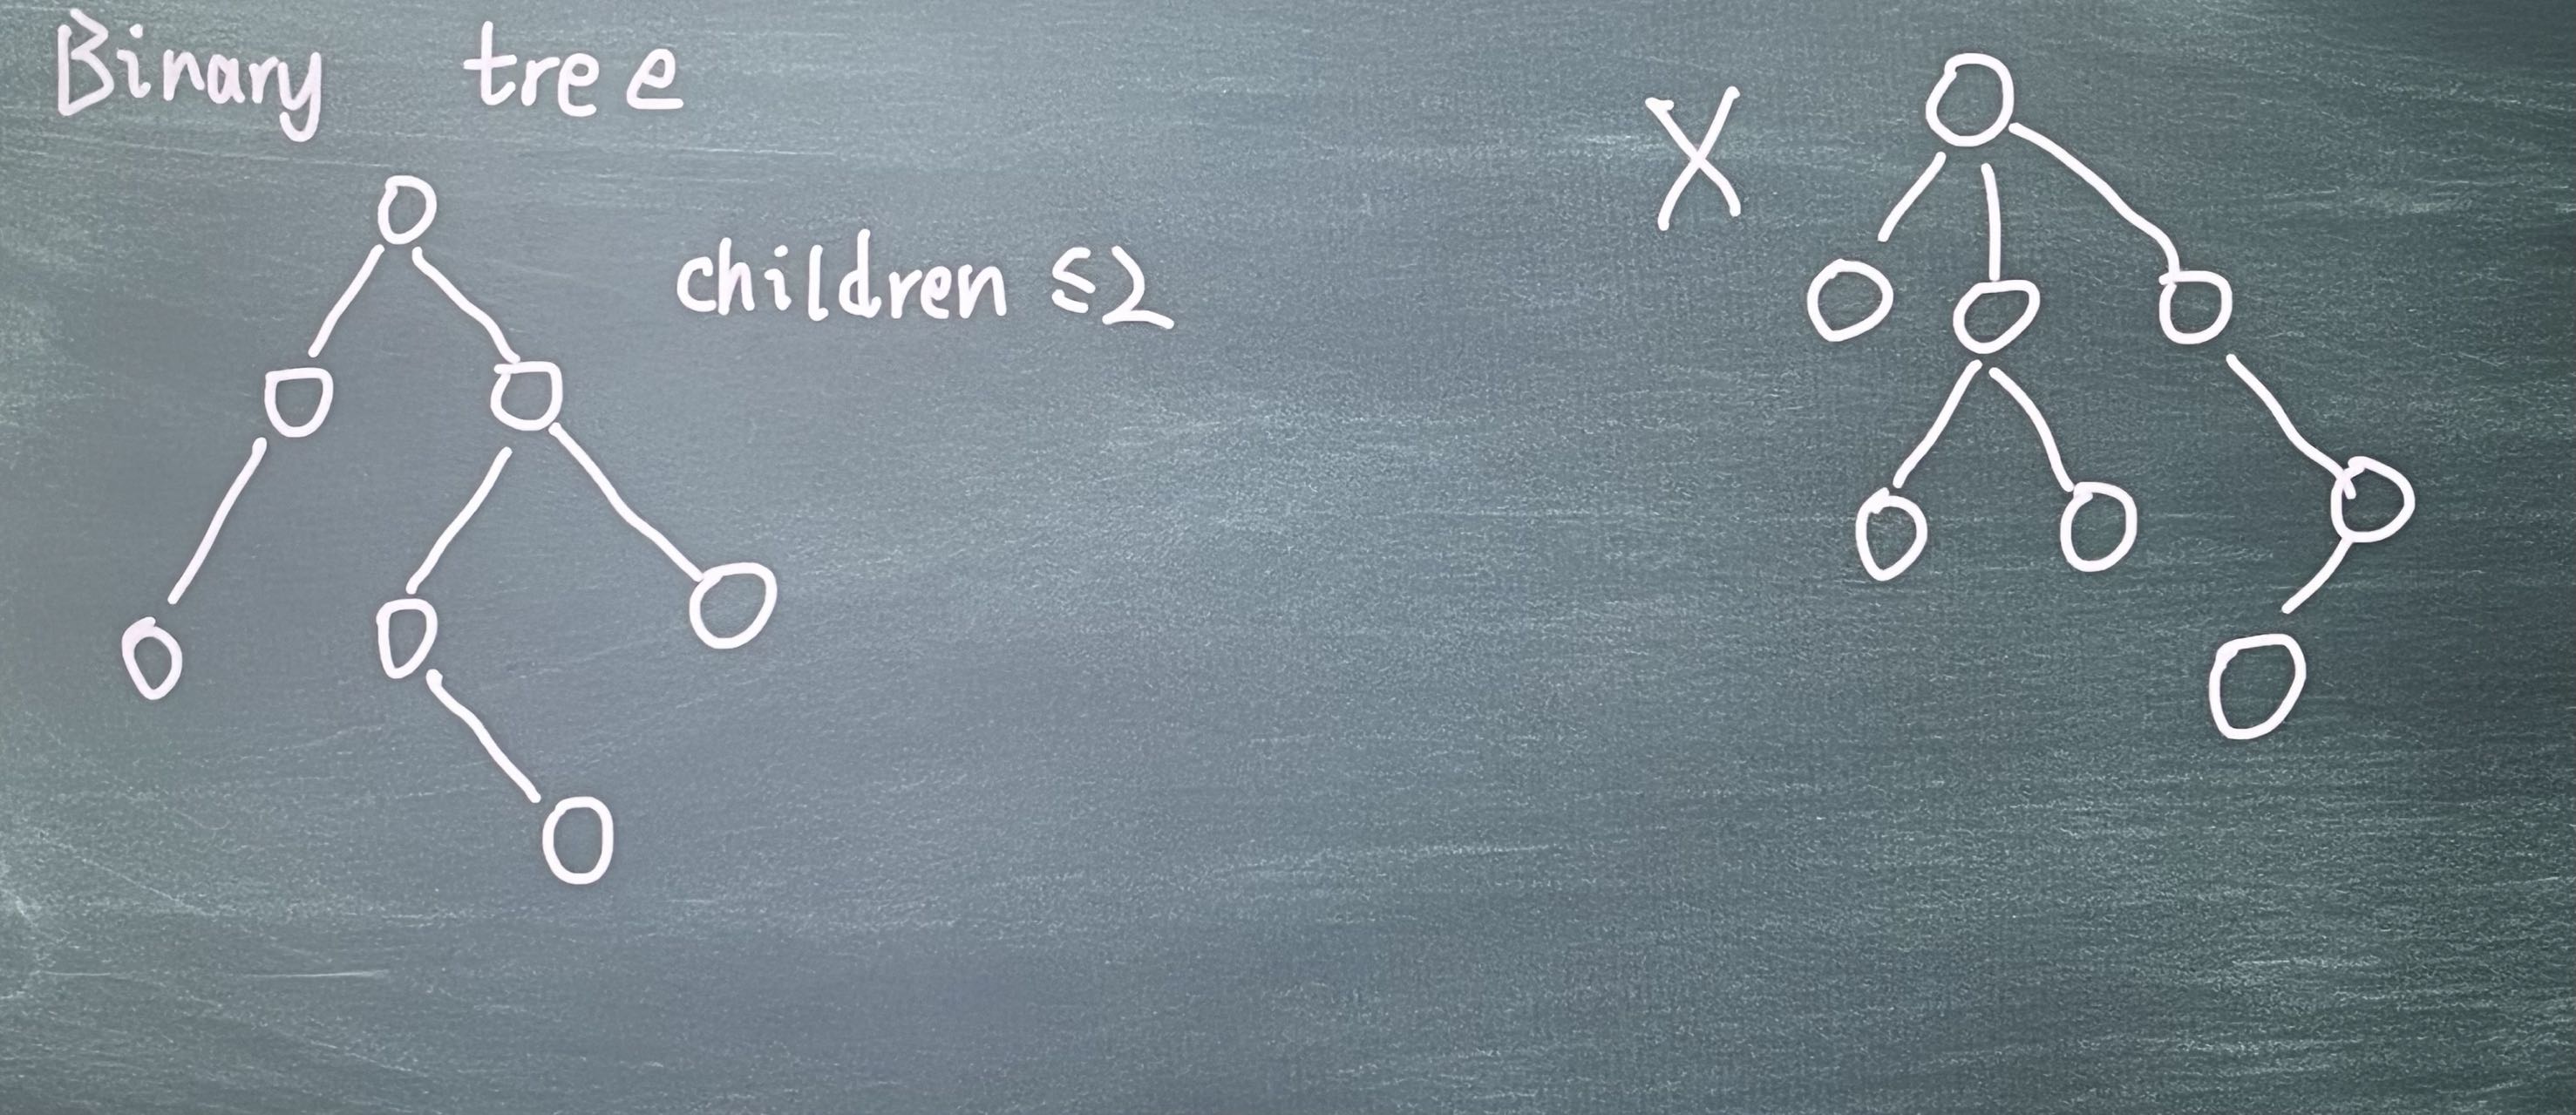 Binary tree
children ≤2
X